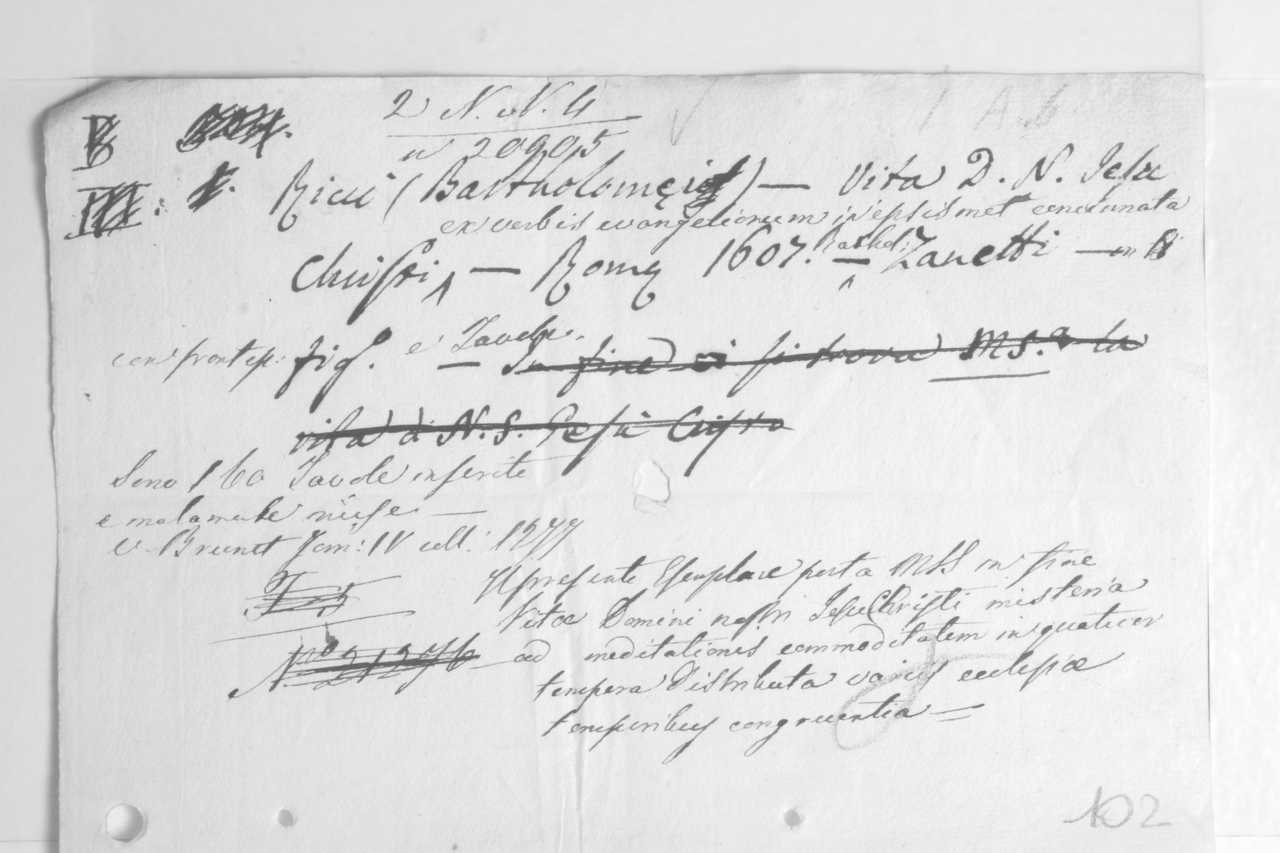 2 N. N. 4
n 20905
Ricci (Bartholomei) — Vita D. N. Jesu
ex verbis evangeliorum in ipsismet concinnata
Christi — Romę 1607. Barthol: Zanetti — in 8
con frontesp: fig.° e Tavole. — In fine vi si trova MS.ª la
vita di N. S. Gesù Cristo
Sono 160 Tavole inserite
e malamente
V. Brunet Tom: IV coll: 1277
Il presente Esemplare porta MSS in fine
Vitæ Domini nostri Jesu Christi misteria
ad meditationis commoditatem in quatuor
tempora distributa variis ecclesiæ
temporibus congruentia —
102